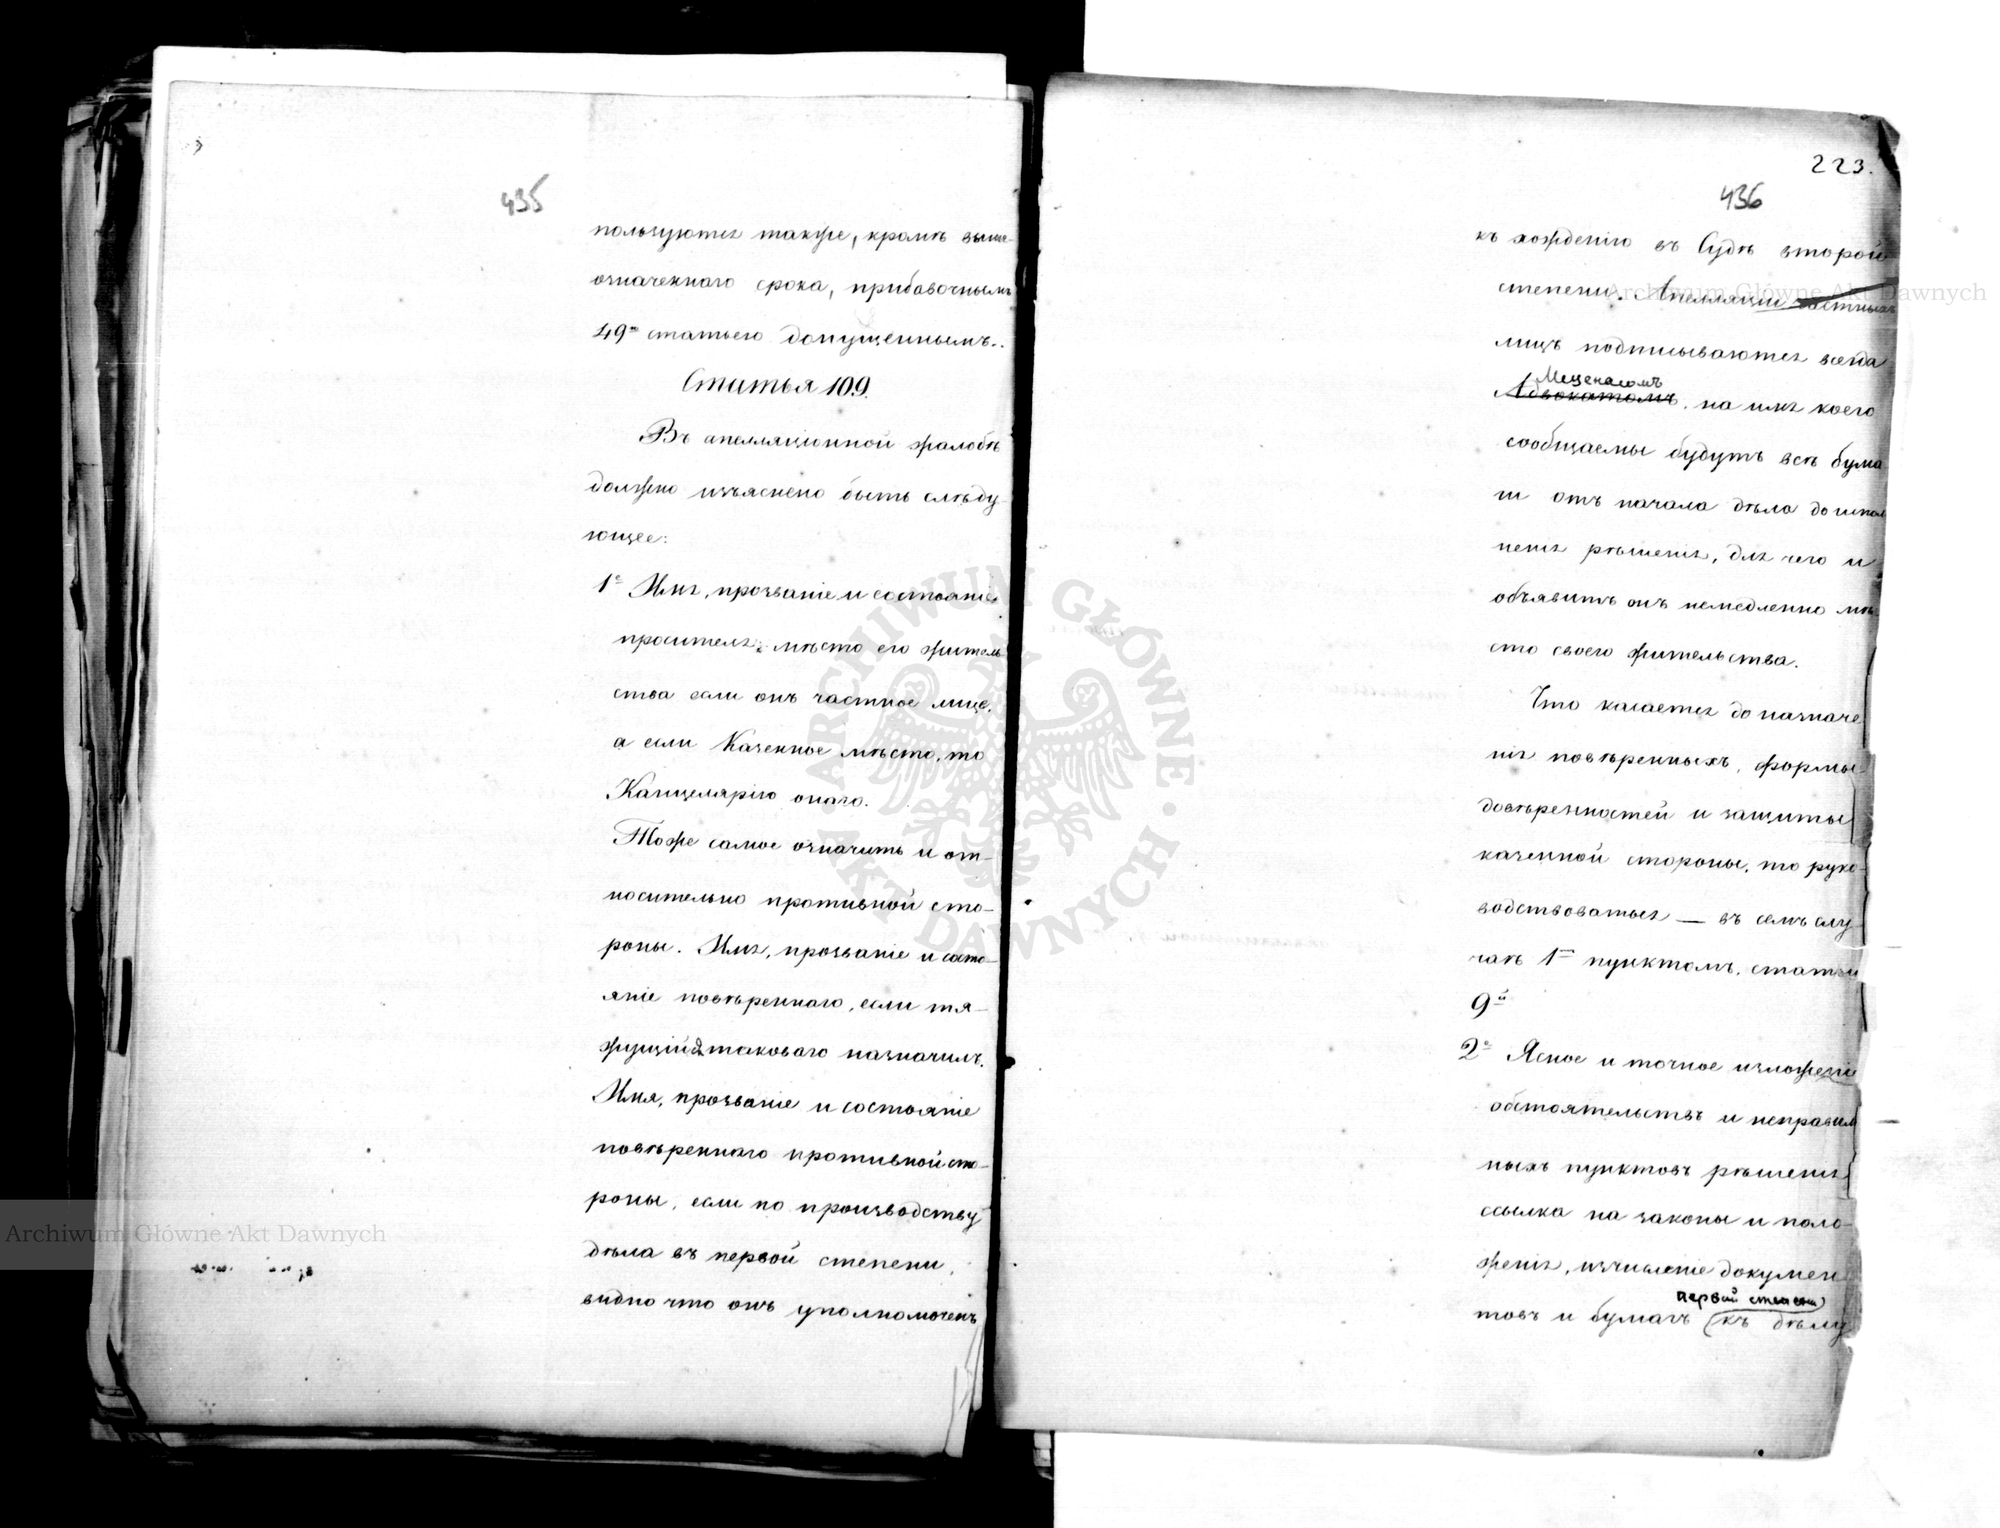 435
пользуются также, кромѣ выше-
означеннаго срока, прибавочнымъ
49ю статьею допущеннымъ.
Статья 109.
Въ апелляціонной жалобѣ
должно изъяснено быть слѣду-
ющее:
1е Имя, прозваніе и состояніе
просителя, мѣсто его житель
ства если онъ частное лице,
а если Казенное мѣсто, то
Канцелярію онаго.
Тоже самое означить и от-
носительно противной сто-
роны. Имя, прозваніе и состо-
яніе повѣреннаго, если тя-
жущійся таковаго назначилъ.
Имя, прозваніе и состояніе
повѣреннаго противной сто-
роны, если по производству
дѣла въ первой степени,
видно что онъ уполномоченъ
223.
436
къ хожденію въ Судѣ второй
степени. Апелляціи частныхъ
лицъ подписываются всегда
Меценасомъ
Адвокатомъ, на имя коего
сообщаемы будутъ всѣ бума
ги отъ начала дѣла до испол
ненія рѣшенія, для чего и
объявитъ онъ немедленно мѣ
сто своего жительства.
Что касается до назначе
нія повѣренныхъ, формы
довѣренностей и защиты
казенной стороны, то руко-
водствоваться — въ семъ слу
чаѣ 1мъ пунктомъ, статьи
9й
2е Ясное и точное изложеніе
обстоятельствъ и неправиль
ныхъ пунктовъ рѣшенія
ссылка на законы и поло-
женія, изчисленіе докумен
первой степени
товъ и бумагъ (къ дѣлу
Archiwum Główne Akt Dawnych
Archiwum Główne Akt Dawnych
ARCHIWUM GŁÓWNE · AKT DAWNYCH ·